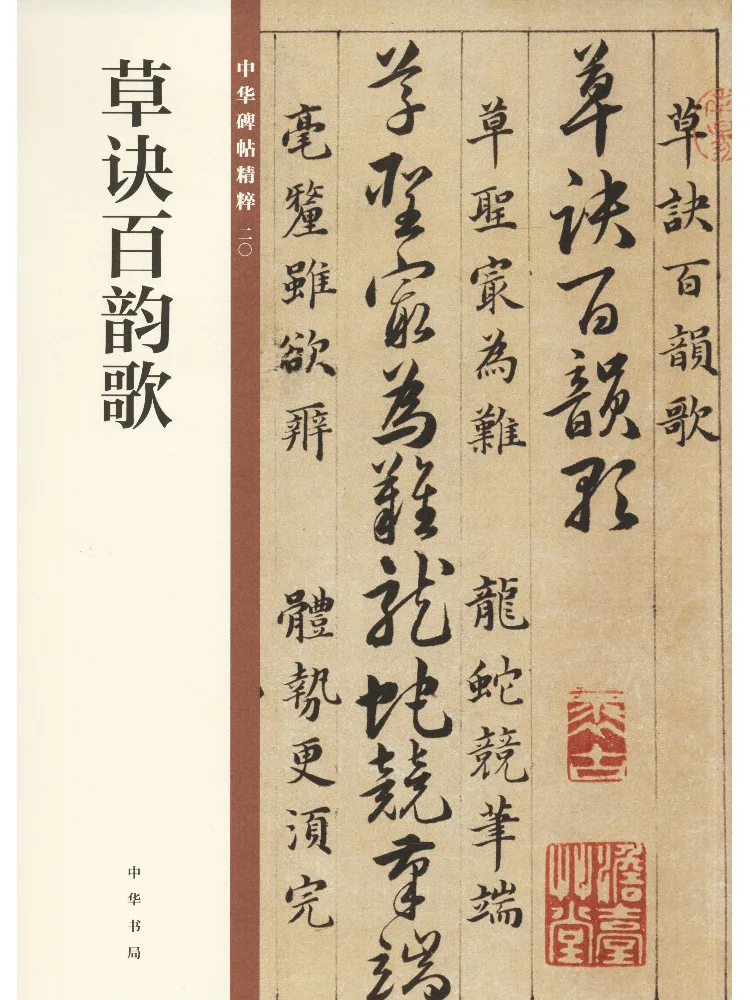 草诀百韵歌
中华书局
中华碑帖精粹 二〇
草訣百韻歌
草诀百韻歌
草聖寂為難 龍蛇競筆端
草聖寂為難龍蛇競筆端
毫釐雖欲辨 體勢更須完